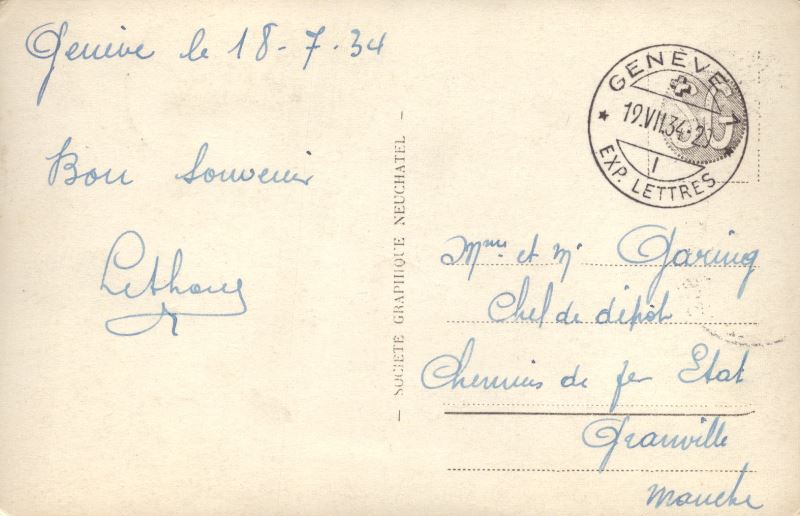 Genève le 18-7.34
Bon Souvenir
GENÈVE 1
19.VII.34-20
1
EXP. LETTRES
— SOCIÉTÉ GRAPHIQUE NEUCHATEL —
Mme et Mr Garing
Chef de dépôt
Chemins de fer Etat
Granville
Manche